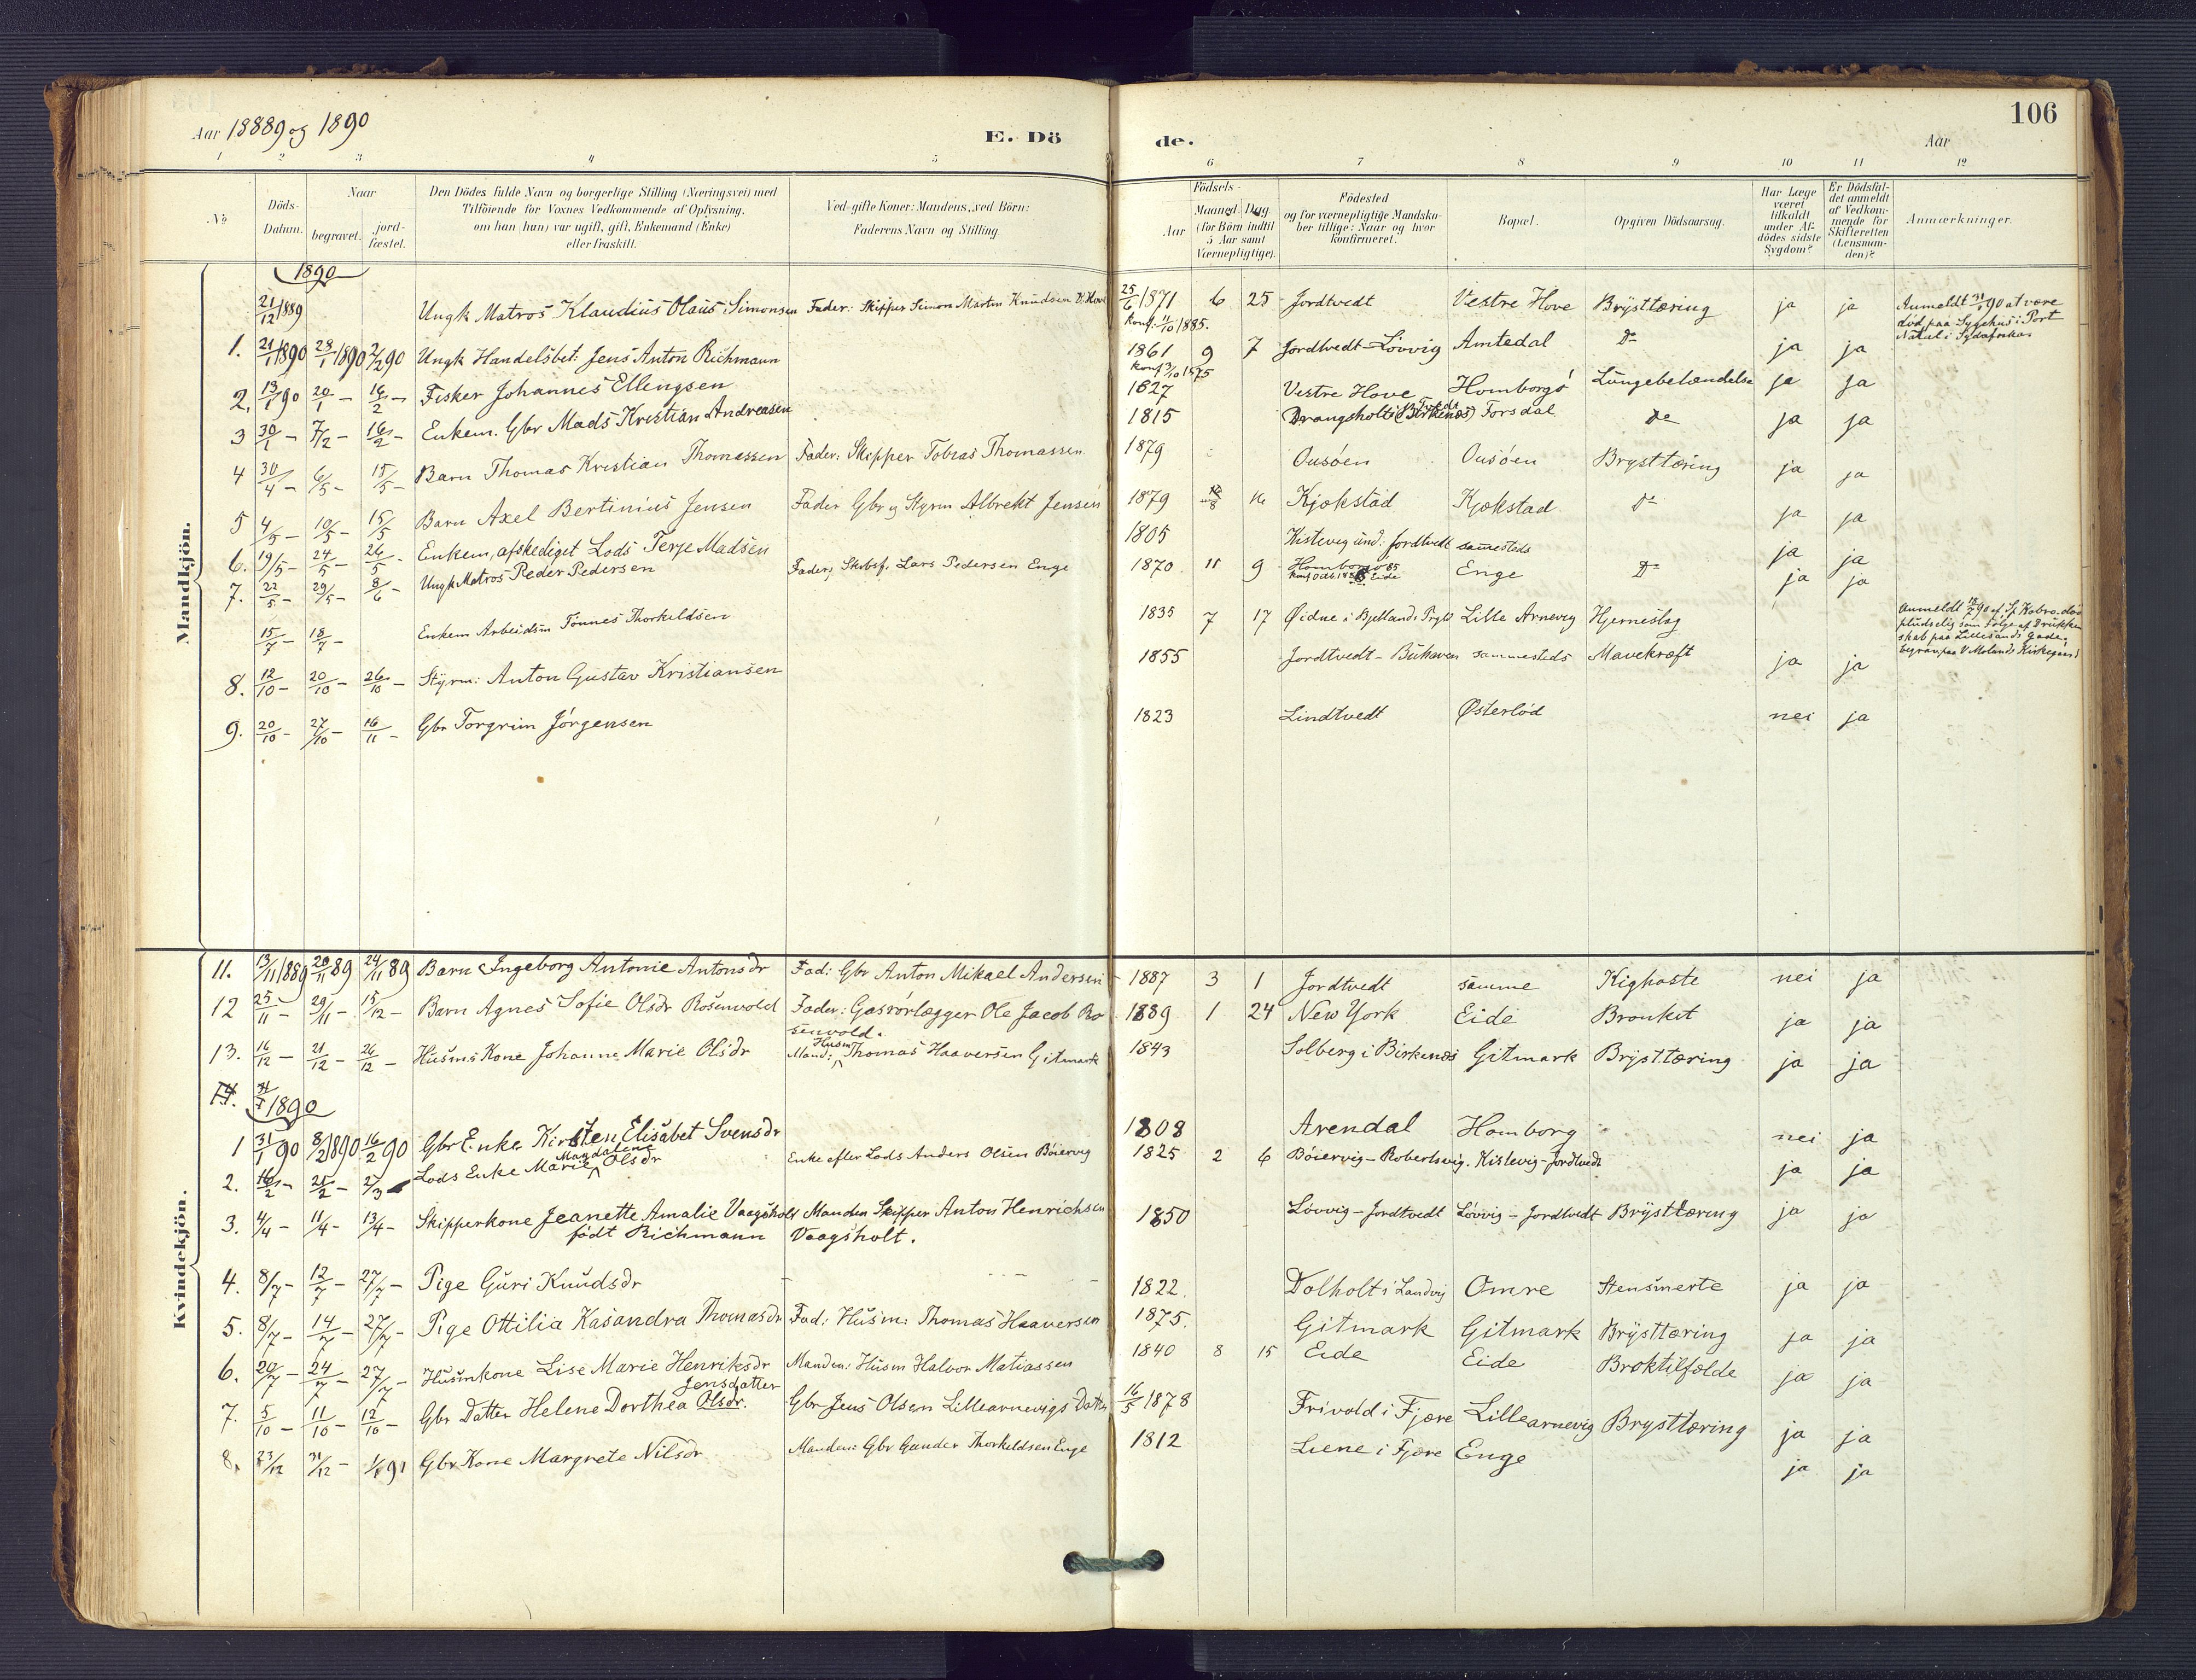 Aar 18889 og 1890 E. Dö de. Aar 106
1 2 3 4 5 6 7 8 9 10 11 12
No
Döds-Datum.
Naar begravet. jord-fæstet.
Den Dödes fulde Navn og borgerlige Stilling (Næringsvei) med Tilföiende for Voxnes Vedkommende af Oplysning, om han (hun) var ugift, gift, Enkemand (Enke) eller fraskilt.
Ved gifte Koner: Mandens, ved Börn: Faderens Navn og Stilling.
Födsels-
Aar Maaned. Dag (for Börn indtil 5 Aar samt Værnepligtige).
Födested og for værnepligtige Mandskaber tillige: Naar og hvor konfirmeret.
Bopæl.
Opgiven Dödsaarsag.
Har Læge været tilkaldt under Afdödes sidste Sygdom?
Er Dödsfaldet anmeldt af Vedkommende for Skifteretten (Lensmanden)?
Anmærkninger.
Mandkjön.
1890
21/12 1889 Ungk Matros Klaudius Olaus Simonsen Fader: Skipper Simon Martin Knudsen V. Hove 25/6 1871 6 25 Jordtvedt Vestre Hove Brysttæring ja ja Anmeldt 31/1 90 at være
Konf: 11/10 1885. død paa Sygehus i Port
Natal i Sydafrika.
1. 21/1 1890 28/1 1890 2/2 90 Ungk Handelsbet: Jens Anton Richmann 1861 9 7 Jordtvedt-Løvvig Amtedal Do ja ja
Konf 3/10 1875
2. 13/1 90 20/1 - 16/2 - Fisker Johannes Ellengsen 1827 Vestre Hove Homborgø Lungebetændelse ja ja
3 30/1 - 7/2 - 16/2 - Enkem. Gbr Mads Kristian Andreasen 1815 Drangsholt (Birkenæs) Forsdal Do ja ja
4 30/4 - 6/5 - 15/5 - Barn Thomas Kristian Thomassen Fader: Skipper Tobias Thomassen 1879 Ousøen Ousøen Brysttæring ja ja
5 4/5 - 10/5 - 15/5 Barn Axel Bertinius Jensen Fader Gbr og Styrm Albrekt Jensen 1879 Kjøkstad Kjøkstad Do ja ja
6. 19/5 - 24/5 - 26/5 - Enkem, afskediget Lods Terje Madsen 1805 Kistevig und. Jordtvedt sammesteds ja ja
7. 22/5 - 29/5 - 8/6 - Ungk Matros Peder Pedersen Fader: Skibsf. Lars Pedersen Enge 1870 11 9 Homborgø Enge Do ja ja
15/7 - 18/7 - Enkem Arbeidsm Tønnes Thorkildsen 1835 7 17 Øidne i Bjellands Prgld Lille Arnevig Hjerneslag Anmeldt 18/7 90 af Sp Kobro. død
pludselig som Følge af Drukken
skab paa Lillesands Gade.
begrav. paa V Molands Kirkegaard
8. 12/10 - 20/10 - 26/10 - Styrm: Anton Gustav Kristiansen 1855 Jordtvedt - Buhaven sammesteds Mavekræft ja ja
9. 20/10 - 27/10 - 16/11 - Gbr Torgrim Jörgensen 1823 Lindtvedt Østerlöd nei ja
Kvindekjön.
11. 13/11 1889 20/11 89 24/11 89 Barn Ingeborg Antonie Antonsdr Fad: Gbr Anton Mikael Andersen 1887 3 1 Jordtvedt samme Kighoste nei ja
12 25/11 - 29/11 - 15/12 - Barn Agnes Sofie Olsdr Rosenvold Fader: Gasrörlægger Ole Jacob Ro 1889 1 24 New York Eide Bronkit ja ja
senvold.
13. 16/12 - 21/12 - 26/12 - Husm.s Kone Johanne Marie Olsdr Mand: Husm Thomas Haaversen Gitmark 1843 Solberg i Birkenæs Gitmark Brysttæring ja ja
14.
1890
1 31/1 90 8/2 1890 16/2 90 Gbr Enke Kirsten Elisabet Svensdr 1808 Arendal Homborg nei ja
2. 16/2 - 21/2 - 27/3 Lods Enke Marie Magdalene Olsdr Enke efter Lods Anders Olsen Böiervig 1825 2 6 Böiervig - Robertsvig. Kistevig - Jordtvedt ja ja
3. 4/4 - 11/4 - 13/4 - Skipperkone Jeanette Amalie Vaagsholt Manden Skipper Anton Henrichsen 1850 Løvvig - Jordtvedt Løvvig - Jordtvedt Brysttæring ja ja
födt Richmann Vaagsholt.
4. 8/7 - 12/7 - 27/7 - Pige Guri Knudsdr 1822. Dolholt i Landvig Omre Stensmerte ja ja
5. 8/7 - 14/7 - 27/7 - Pige Ottilia Kasandra Thomasdr Fad: Husm: Thomas Haaversen 1875. Gitmark Gitmark Brysttæring ja ja
6. 20/7 - 24/7 - 27/7 - Husmkone Lise Marie Henriksdr Manden: Husm Halvor Matiassen 1840 8 15 Eide Eide Broktilfælde ja ja
Jensdatter
7. 5/10 - 11/10 - 12/10 - Gbr Datter Helene Dorthea Olsdr. Gbr Jens Olsen Lillearnevigs Datter 16/5 1878 Frivold i Fjære Lillearnevig Brysttæring ja ja
8. 23/12 31/12 - 1/1 91 Gbr Kone Margrete Nilsdr Manden: Gbr Gunder Thorkeldsen Enge 1812 Liene i Fjære Enge ja ja